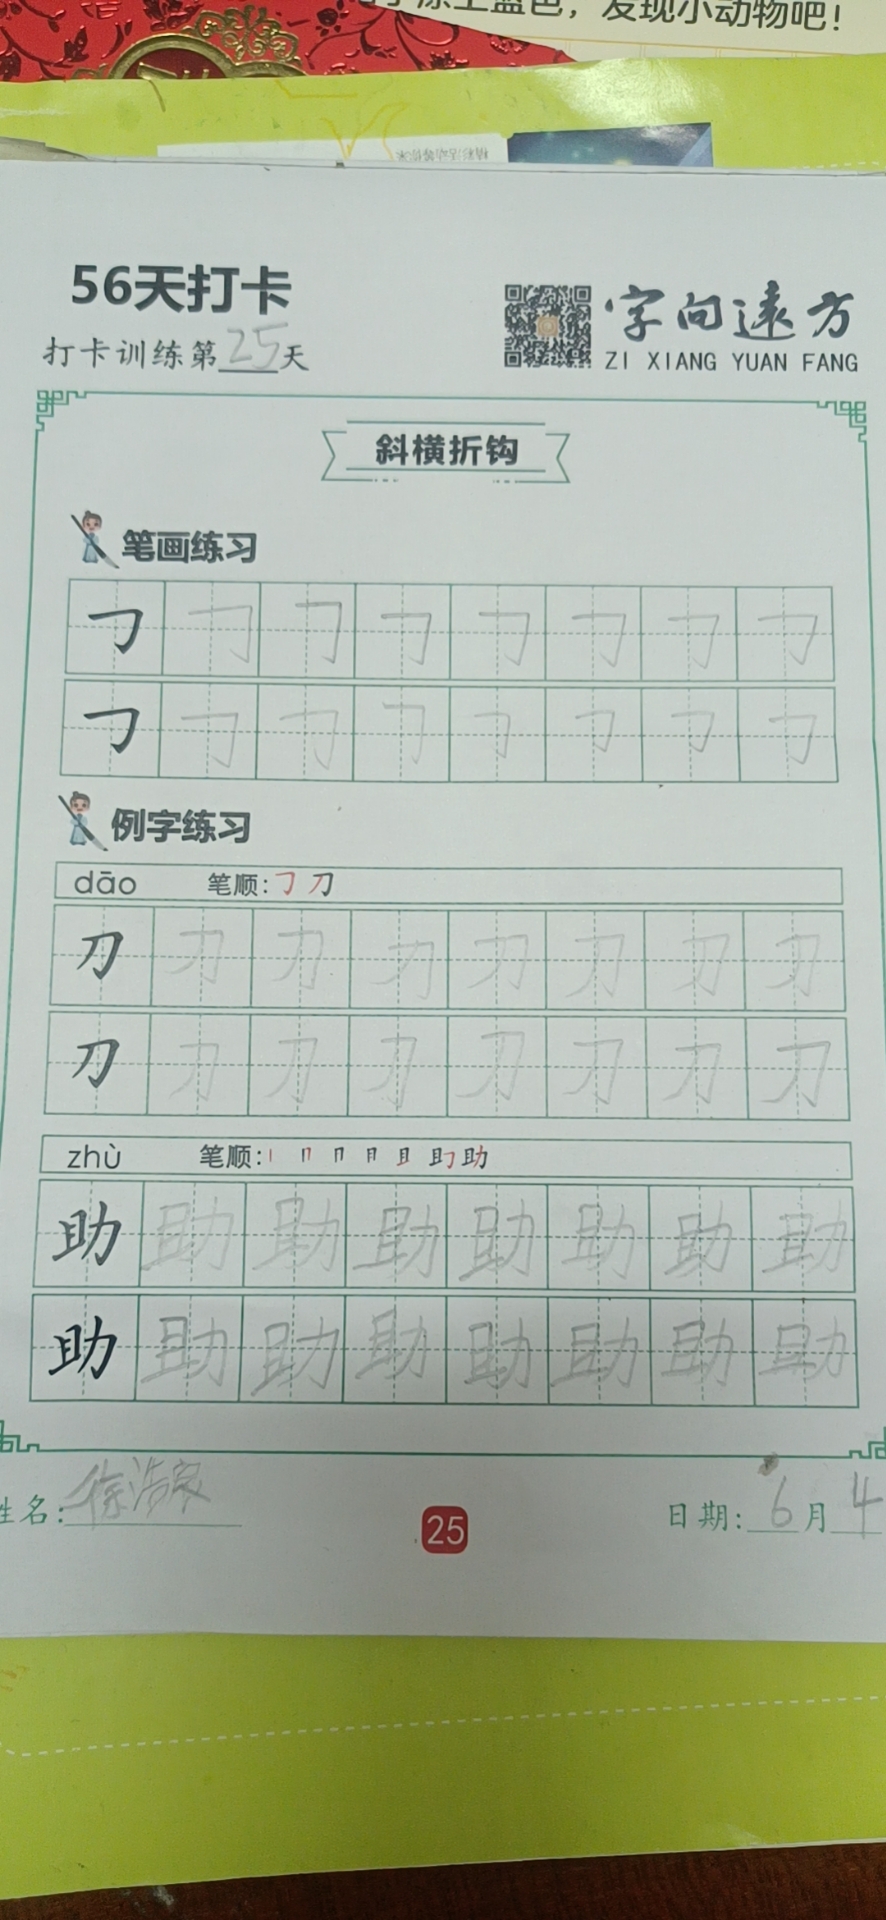 涂上蓝色，发现小动物吧！
56天打卡
字向远方
打卡训练第25天
ZI XIANG YUAN FANG
斜横折钩
笔画练习
𠃌 𠃌 𠃌 𠃌 𠃌 𠃌 𠃌 𠃌
𠃌 𠃌 𠃌 𠃌 𠃌 𠃌 𠃌 𠃌
例字练习
dāo 笔顺:𠃌 刀
刀 刀 刀 刀 刀 刀 刀 刀
刀 刀 刀 刀 刀 刀 刀 刀
zhù 笔顺:丨 冂 冂 月 且 助 助
助 助 助 助 助 助 助 助
助 助 助 助 助 助 助 助
姓名:徐浩家
25
日期:6月4